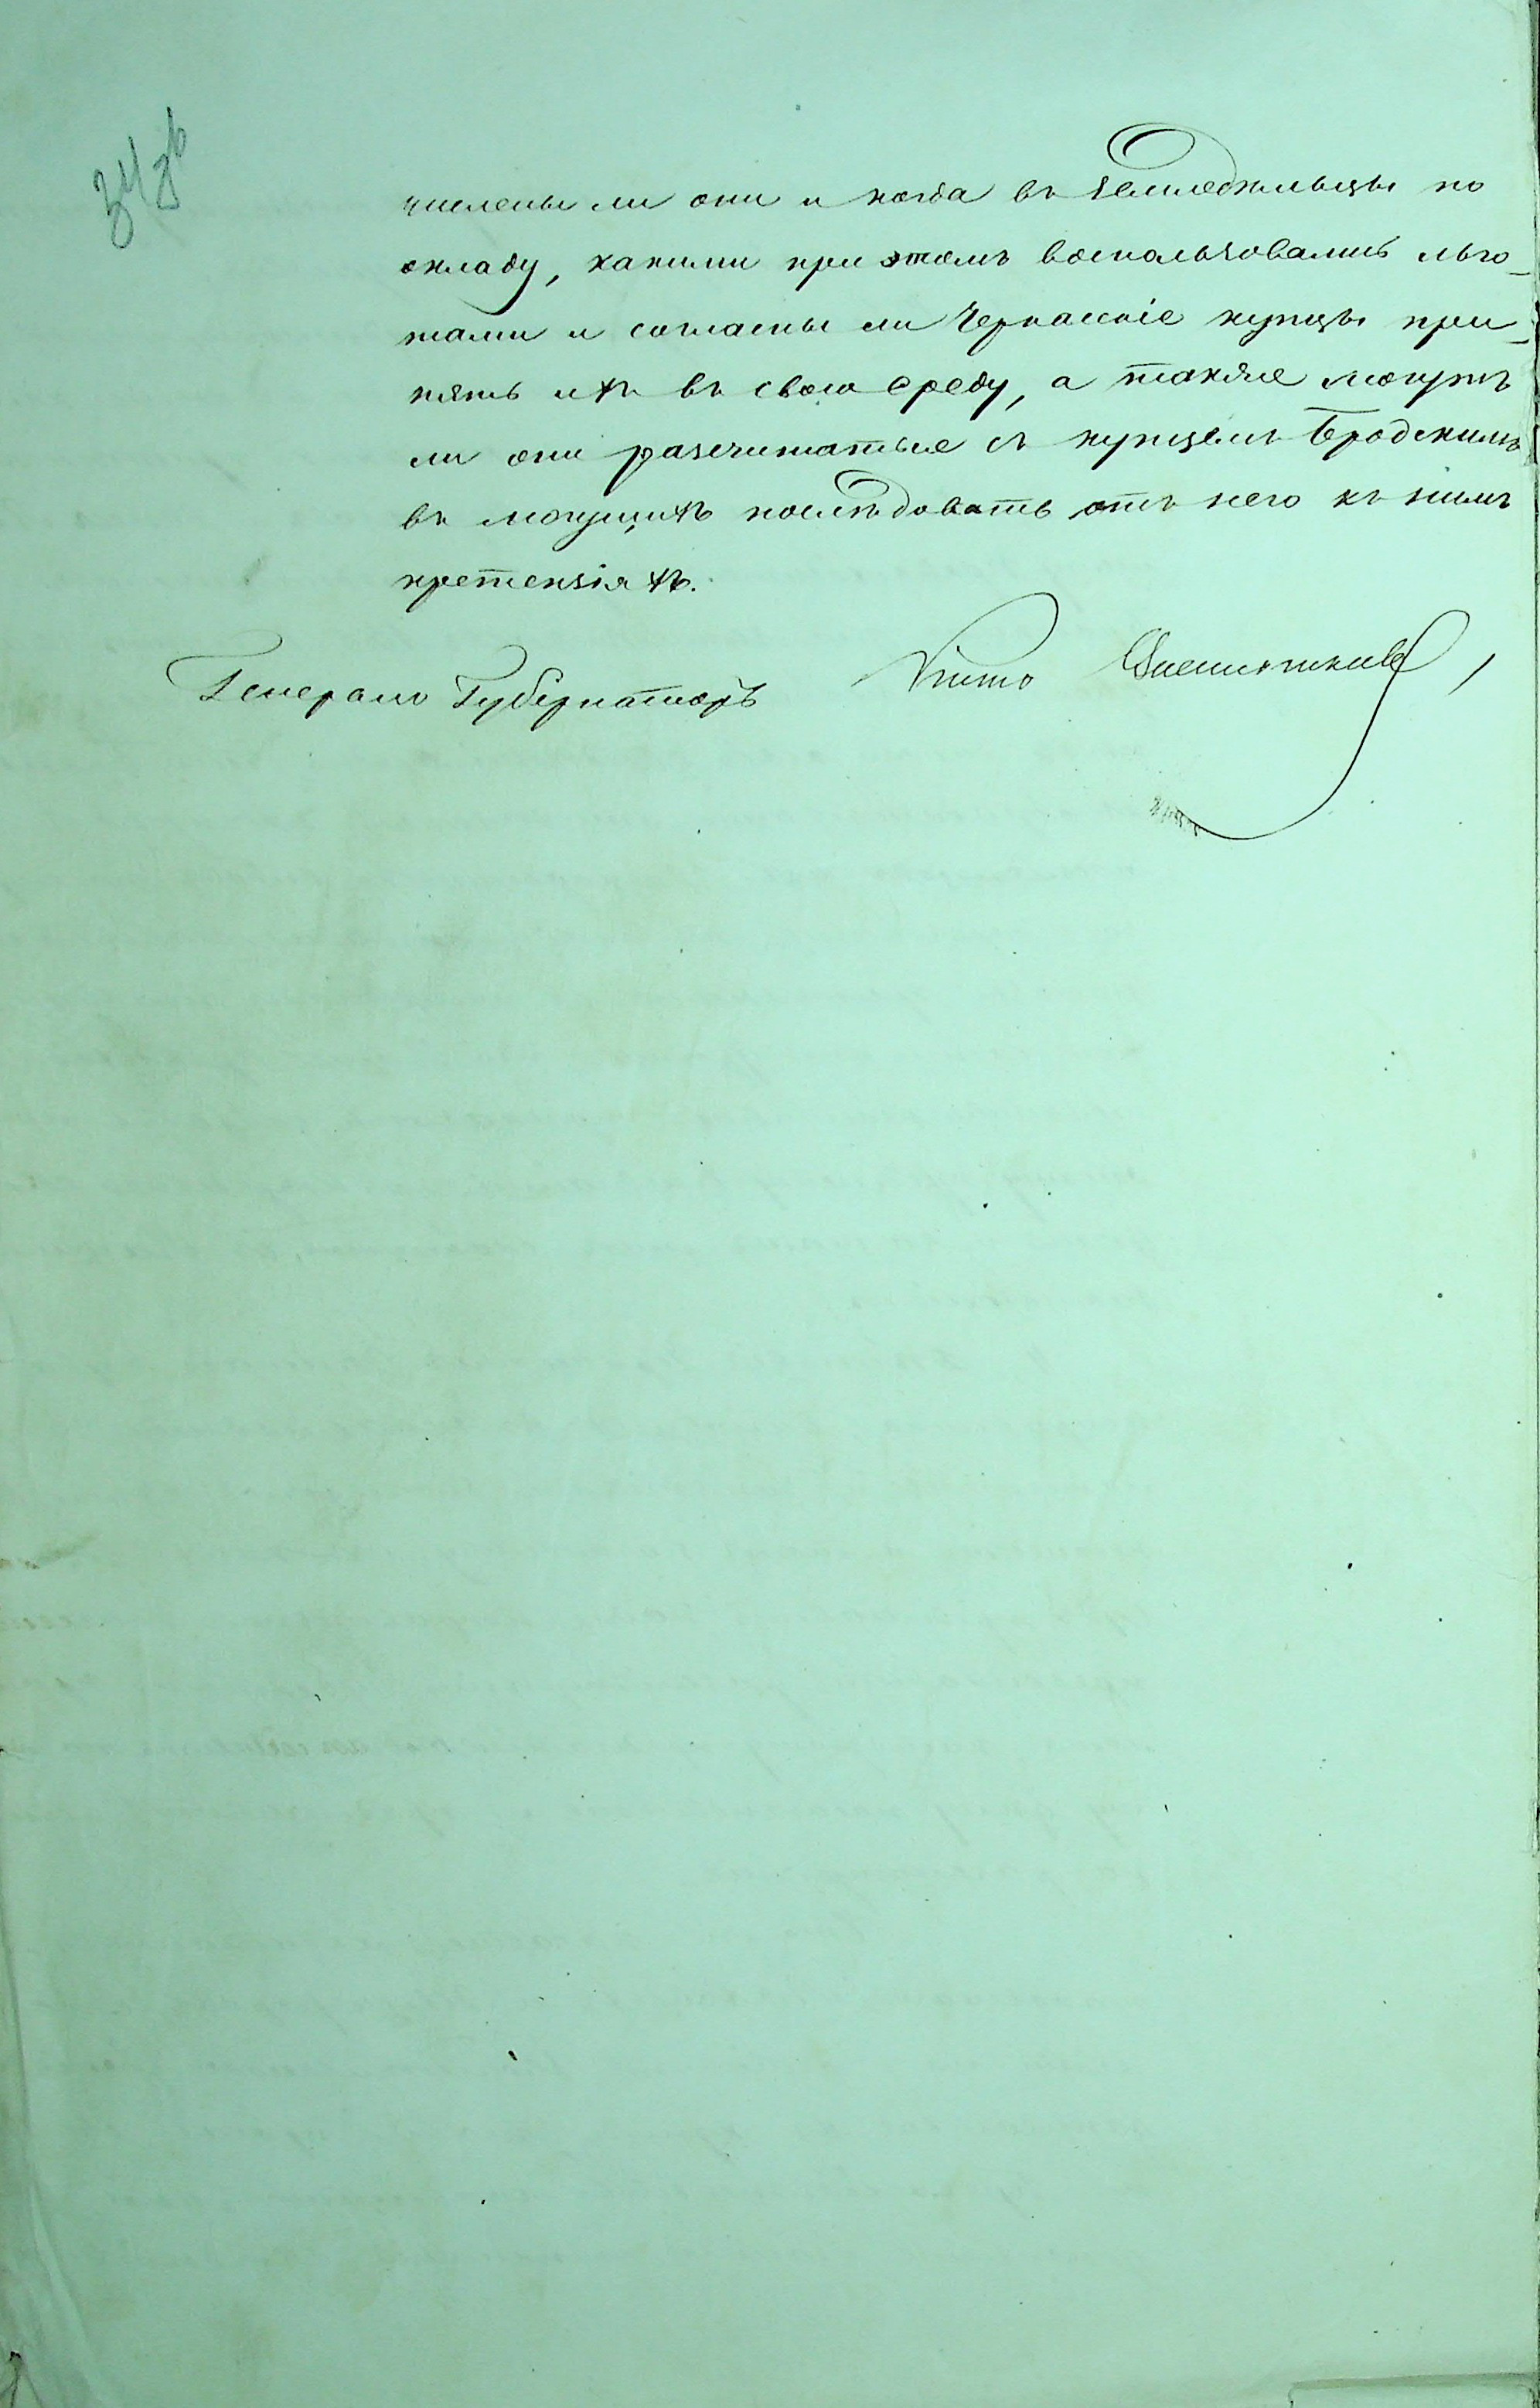 34 зв
числены ли они и когда въ земледѣльцы по
окладу, какими при этомъ воспользовались льго-
тами и согласны ли Черкасскіе купцы при-
нять ихъ въ свою среду, а также могутъ
ли они разсчитаться съ купцемъ Бродскимъ
въ могущихъ послѣдовать отъ него къ нимъ
претензіяхъ.
Генералъ Губернаторъ